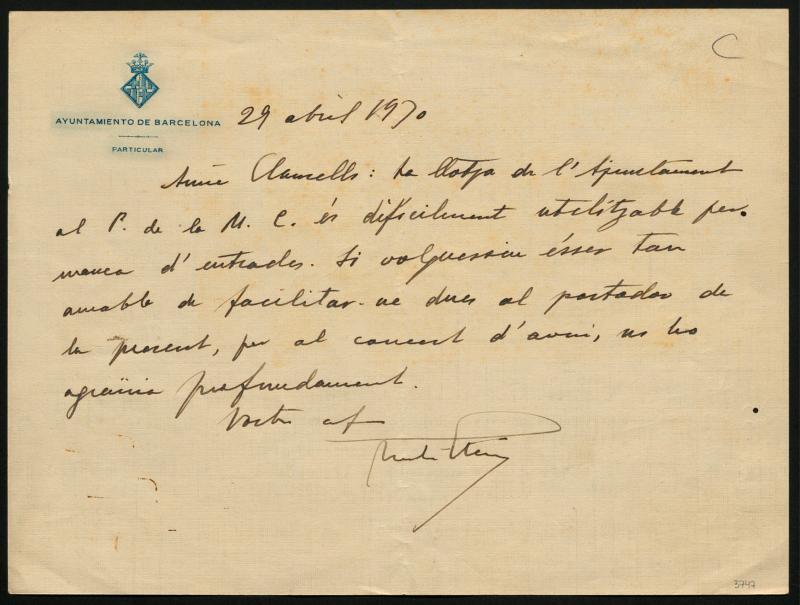 C
AYUNTAMIENTO DE BARCELONA
PARTICULAR
29 abril 1930
Amic Clausells: La llotja de l'Ajuntament
al P. de la M. C. és difícilment utilitzable per
manca d'entrades. Si volguessiu ésser tan
amable de facilitar-ne dues al portador de
la present, per al concert d'avui, us ho
agraïria profundament.
Vostre af
3747